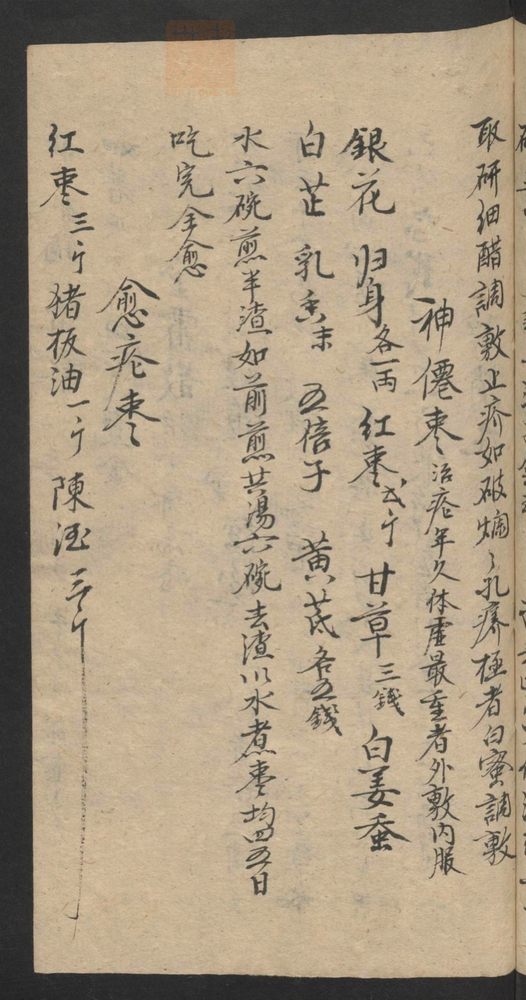 取研细醋調敷上疥如破爛之乳癢極者白蜜調敷
神僊枣 治疮年久体虚最重者外敷内服
銀花 归身各一両 红枣弍斤 甘草三錢 白姜蚕
白芷 乳香末 五倍子 黄芪各五錢
水六碗煎半渣如前煎共湯六碗去渣以水煮枣均四五日
吃完全愈
愈疮枣
红枣三斤 猪板油一斤 陳酒三斤